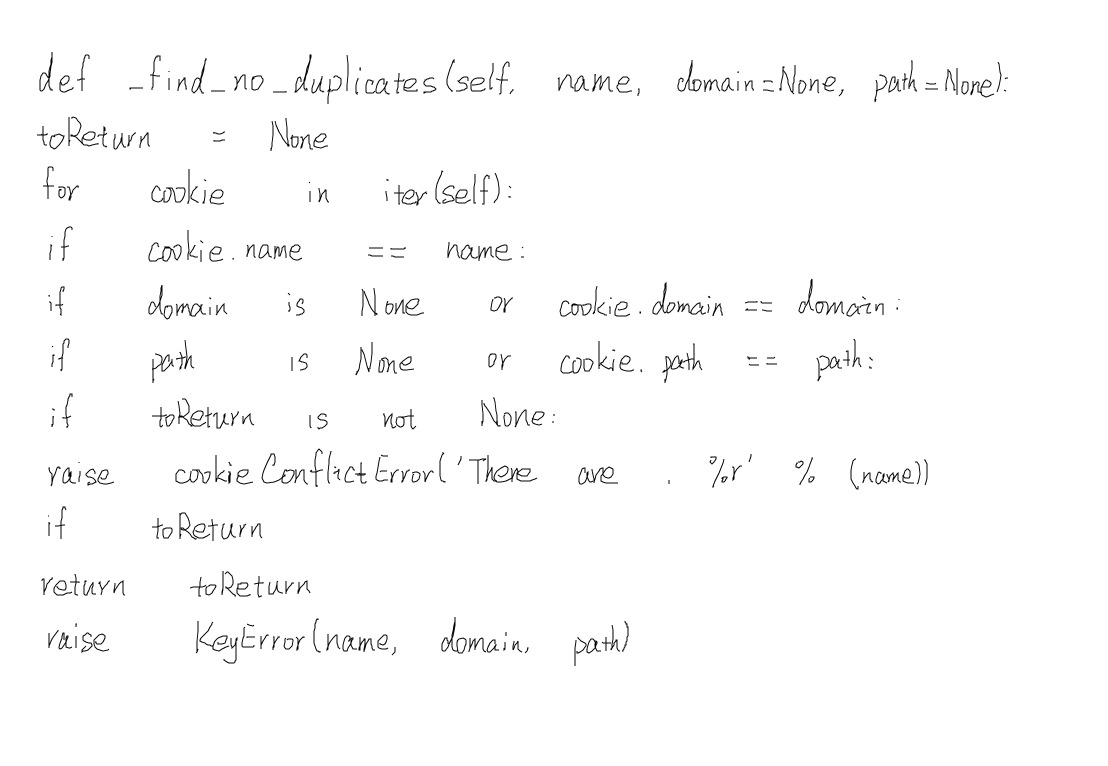 def _find_no_duplicates(self, name, domain=None, path=None):
toReturn = None
for cookie in iter(self):
if cookie.name == name:
if domain is None or cookie.domain == domain:
if path is None or cookie.path == path:
if toReturn is not None:
raise cookieConflictError('There are . %r' % (name))
if toReturn
return toReturn
raise KeyError(name, domain, path)